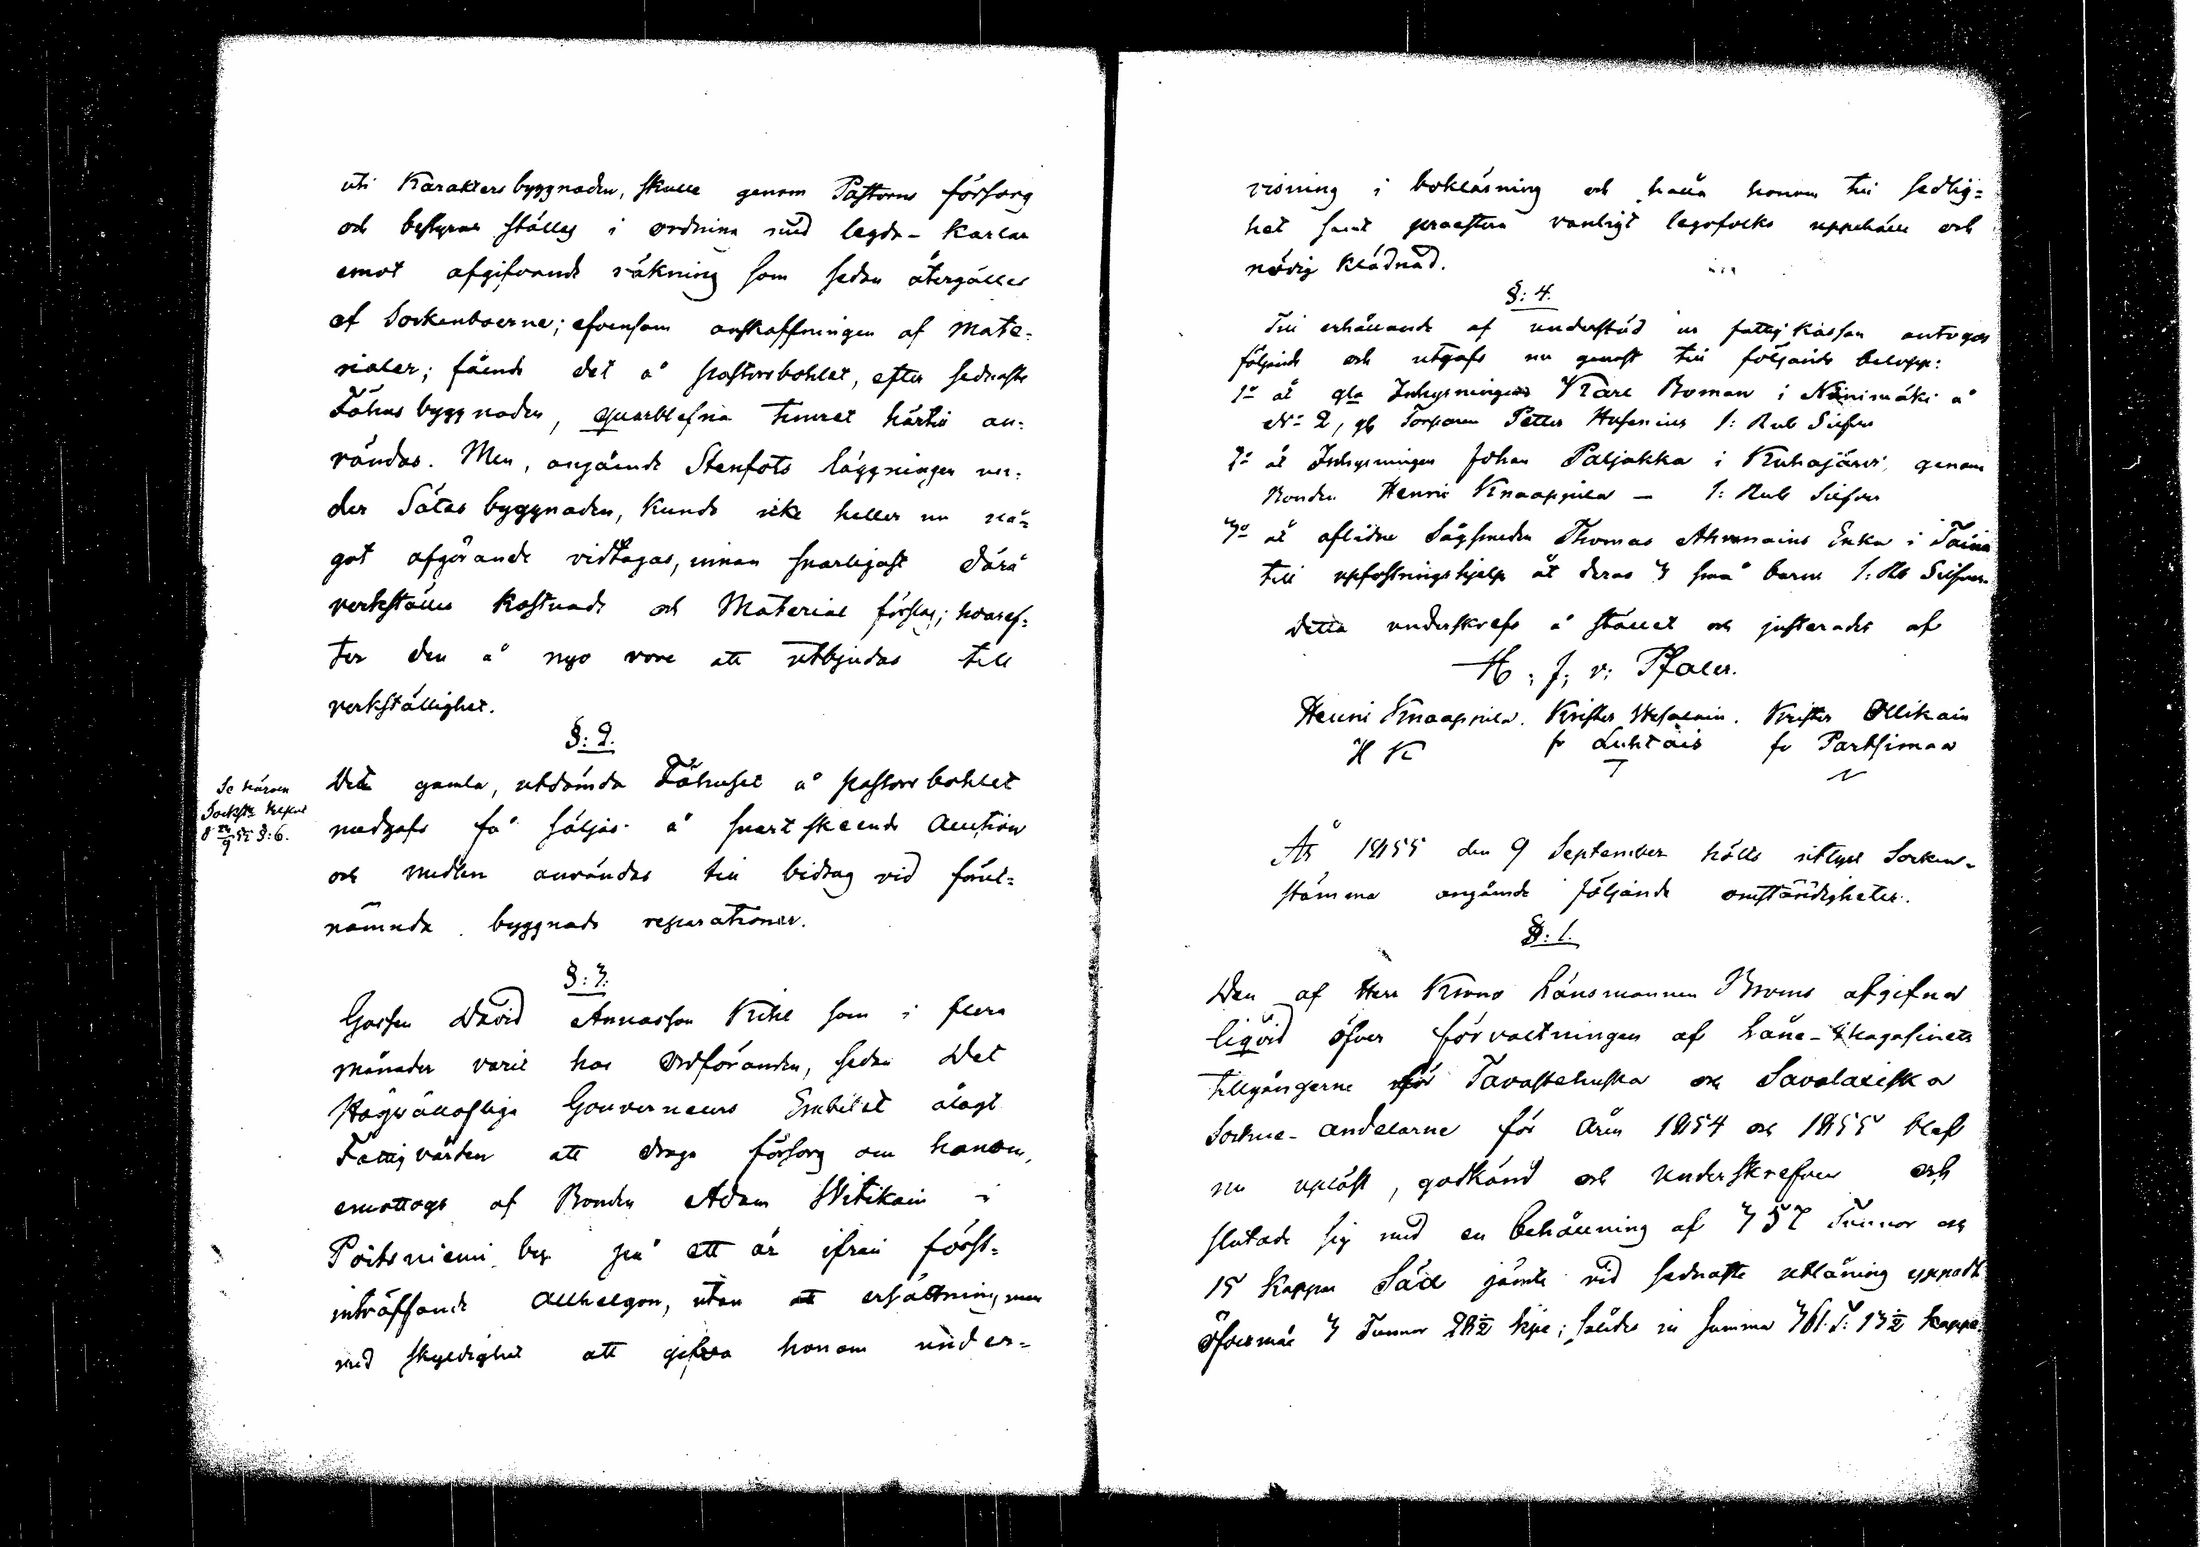 uti Karaktersbyggnaden, skulle genom Pastorns försorg
och bestyrer ställas i ordning med legda-Karlar
emot afgifvande räkning som sedan återgälles
af Sockenboerne; efvensom anskaffningen af mate-
rialer; fående det å pastorsbohlet, efter sednaste
Fähus byggnaden, quarblefna timret härtill an-
vändas. Men, angående Stenfots läggningen un-
der Sätes byggnaden, kunde icke heller nu nå-
got afgörande vidtagas, innan snarligast därå
verkställes Kostnads och Material förslag; hvaref-
ter den å nyo vore att utbjudas till
verkställighet.
§: 2.
Det gamla, utdömda Fähuset å pastors bohlet
medgafs få säljas å snart skeende Auction
och medlen användas till bidrag vid förut-
nämnda byggnads reparationer.
Se härom
Sockste
§: 6.
§: 3.
Gossen David Annasson Kihl som i flera
månader varit hos Ordföranden, sedan Det
Högvällofliga Gouverneurs Embetet ålagt
Fattigvården att draga försorg om honom,
emottogs af Bonden Adam Witikain i
Poitsniemi by på ett år ifrån först-
inträffande Allhelgon, utan ersättning, men
med skyldighet att gifva honom under-
visning i bokläsning och hålla honom till sedlig-
het samt praestera vanligt legofolks uppehälle och
nödig klädnad.
§: 4.
Till erhållande af understöd ur fattigkassan antogos
följande och utgafs nu genast till följande belopp:
1o åt gla Inhysningen Karl Boman i Niinimäki å
No 2, gb Torparen Petter Husenius 1: Rub Silfver
2o åt Inhysningen Johan Paljakka i Kuhajärvi, genom
Bonden Henric Knaapila — 1: Rub Silfver
3o åt aflidne Sågsmeden Thomas Ahvenains Enka i Taina
till upfostringshjelp åt deras 3 små barn 1: Rb Silfver
Detta underskrefs å stället och justerades af
H: J: v: Pfaler.
Henric Knaapila. Krister Wesalain. Krister Ollikain
H K fr Luhtais fr Partsimaa
År 1855 den 9 September hölls utlyst Socken-
stämma angående följande omständigheter.
§: 1.
Den af Herr Krono Länsmannen Broms afgifna
liqvid öfver förvaltningen af Låne-Magasinets
tillgångerne för Tavastehuska och Savolaxiska
Sockne-andelarne för åren 1854 och 1855 blef
nu upläst, godkänd och underskrefven och
slutade sig med en behållning af 357 Tunnor och
15 Kappar Säd jämte vid sednaste utlåning uppadt
Öfvermål 3 Tunnor 28½ kpr; således in summa 361. T: 13½ kappe.